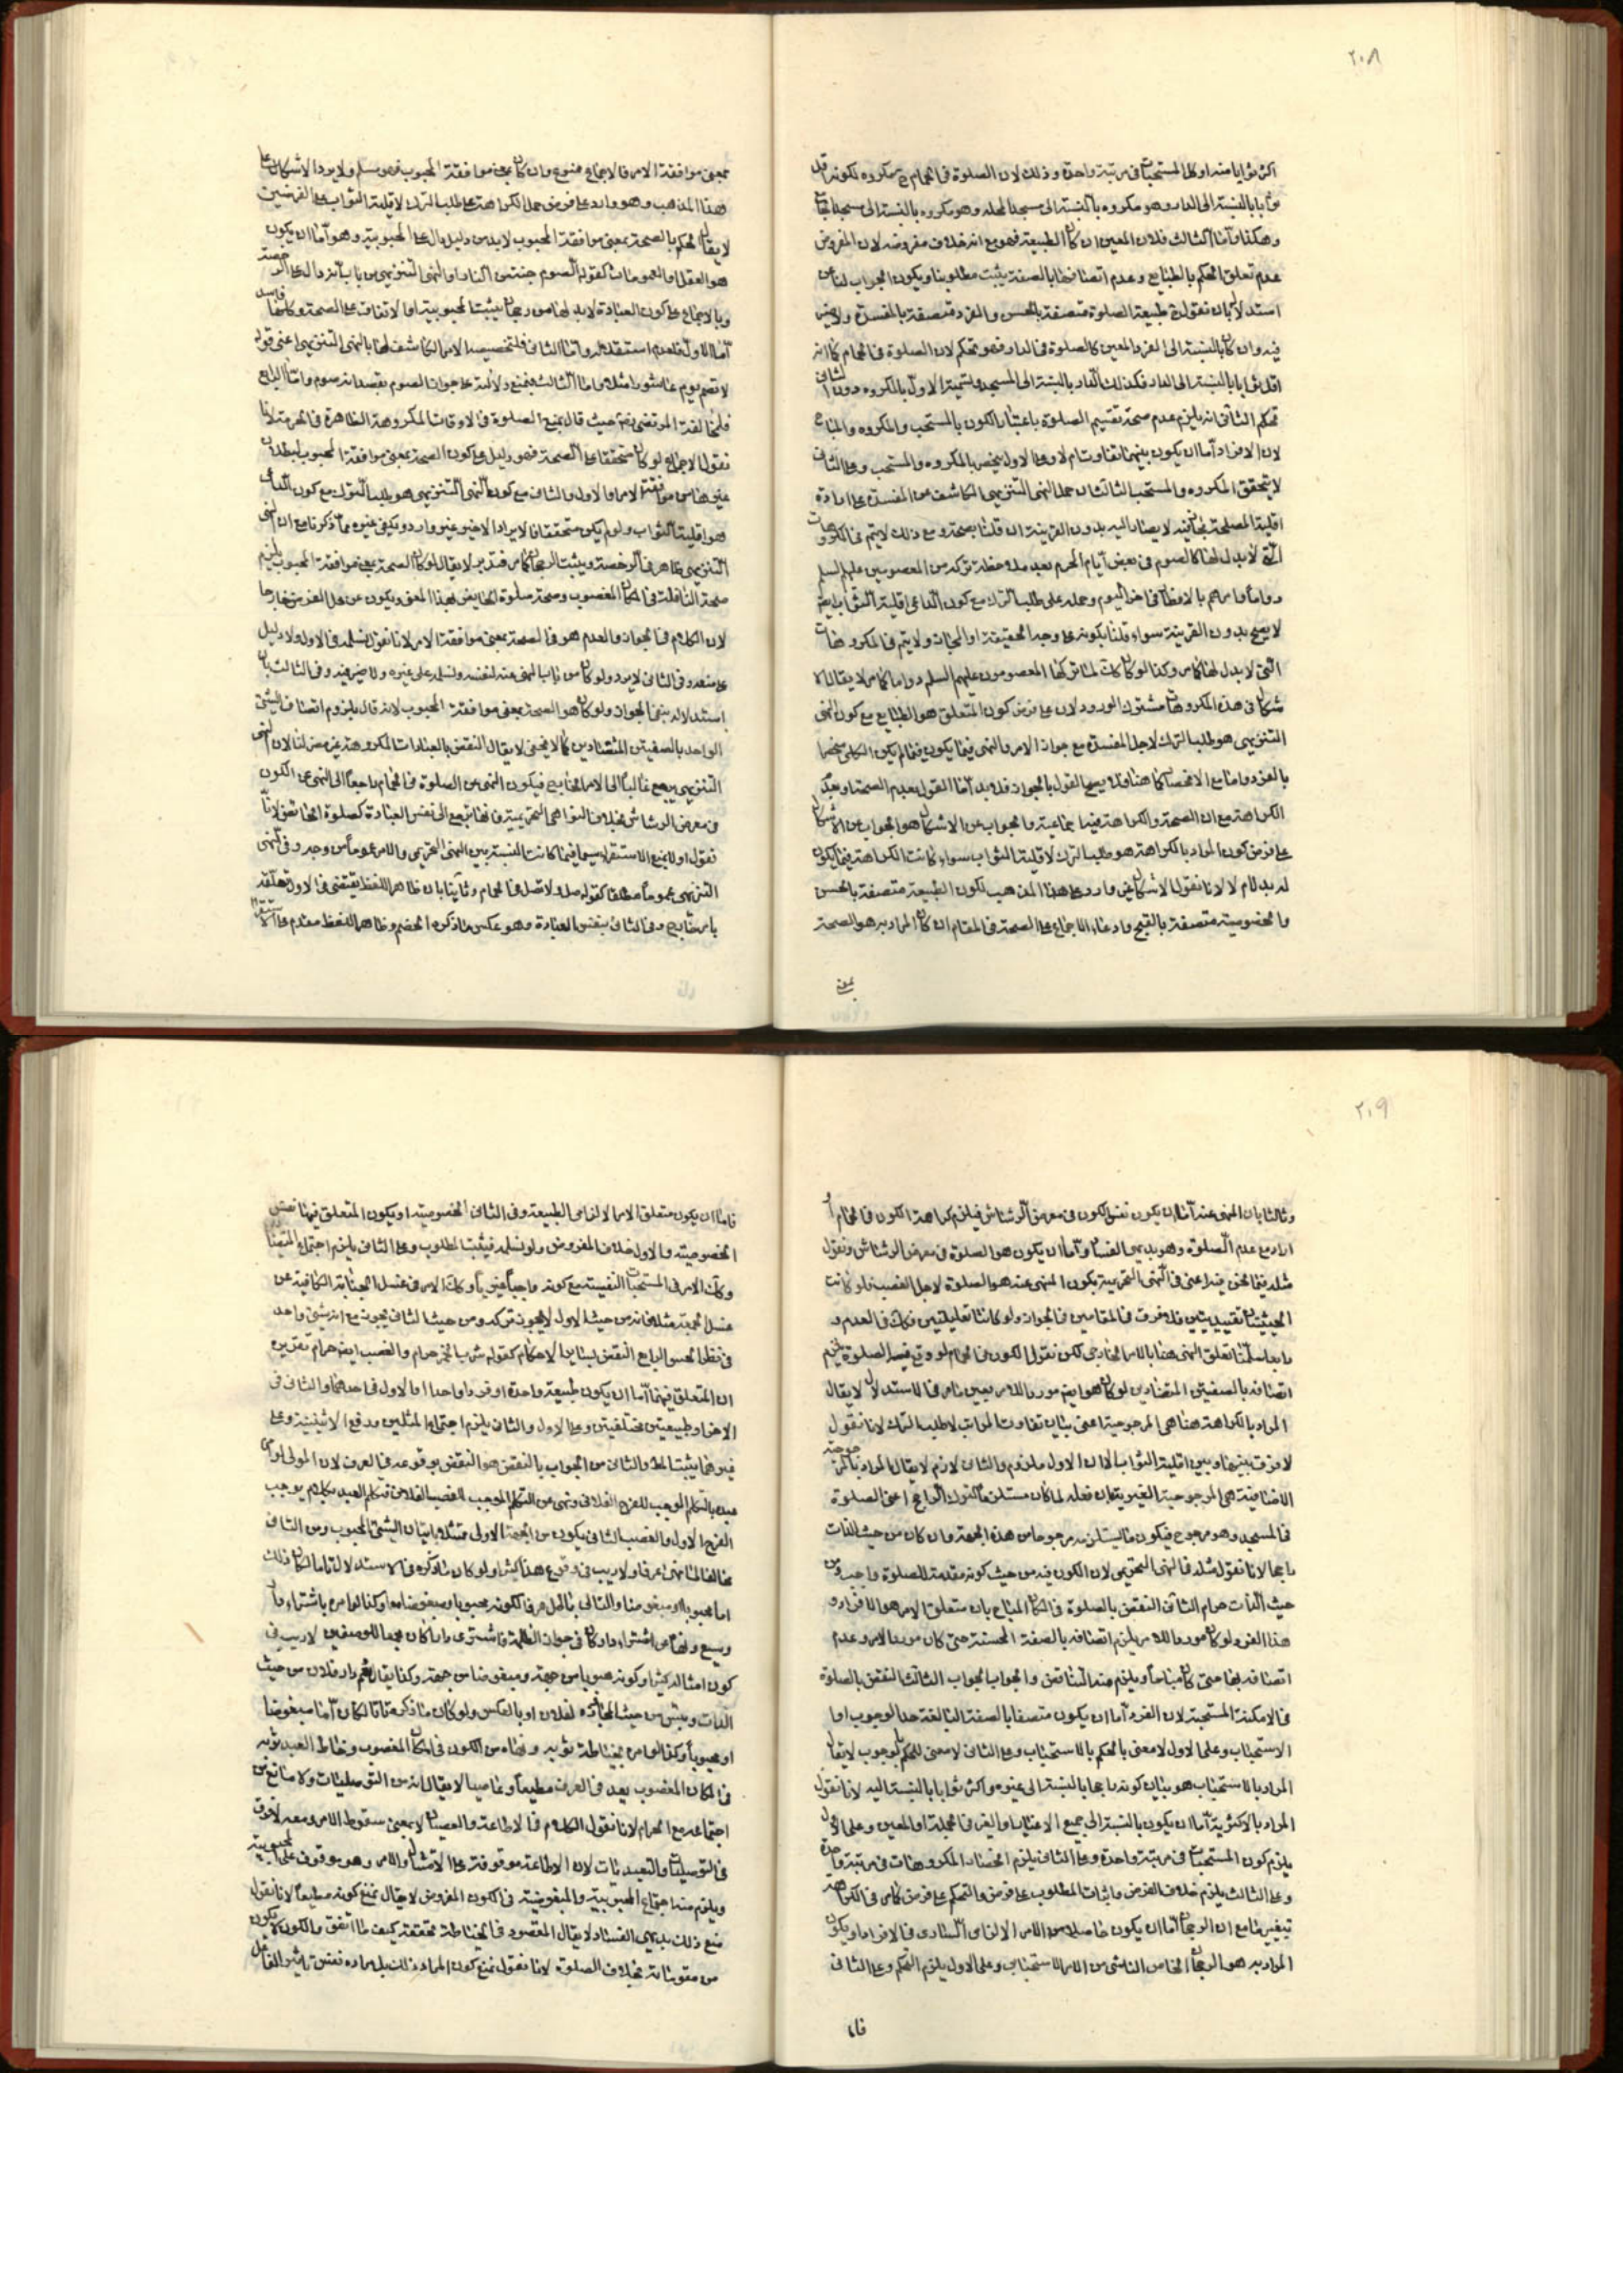 ٢٠٨
اكثر ثوابا منه او كل المستحبات فى مرتبة واحدة وذلك لان الصلوة فى الحمام مكروه لكونه اقل
ثوابا بالنسبة الى الدار وهو مكروه بالنسبة الى مسجد المحلة وهو مكروه بالنسبة الى مسجد الجامع
وهكذا واما الثالث فلان المعين ان كان الطبيعة فهو مع انه خلاف مفروضه لان المفروض
عدم تعلق الحكم بالطبايع وعدم اتصافها بالصفة يثبت مطلوبنا ويكون الجواب لنا عن
استدلالكم بان نقول طبيعة الصلوة متصفة بالحسن والفرد متصفة بالمفسدة ولا ضير
فيه وان كان بالنسبة الى الفرد المعين كالصلوة فى الدار فهو تحكم لان الصلوة فى الحمام كما انه
اقل ثوابا بالنسبة الى الدار فكذلك الدار بالنسبة الى المسجد وتسمية الاول بالمكروه دون الثانى
تحكم الثانى انه يلزم عدم صحة تقسيم الصلوة باعتبار الكون بالمستحب والمكروه والمباح
لان الافراد اما ان يكون بينهما تفاوت ام لا وعلى الاول ينحصر بالمكروه والمستحب وعلى الثانى
لا يتحقق المكروه والمستحب الثالث ان حمل النهى التنزيهى الكاشف عن المفسدة على ارادة
اقلية المصلحة مجاز فيه لا يصار اليه بدون القرينة ان قلنا بصحته ومع ذلك لا يتم فى المكروهات
التى لا بدل لها كالصوم فى بعض ايام المحرم بعد ملاحظة تركه من المعصومين عليهم السلم
دواما وامرهم بالافطار فى هذا اليوم وحمله على طلب الترك مع كون الداعى اقلية الثواب ايضا
لا يصح بدون القرينة سواء قلنا بكونه على وجه الحقيقة او المجاز ولا يتم فى المكروهات
التى لا بدل لها كما مر وكذا لو كان كك لما تركها المعصومون عليهم السلم دواما كما مر لا يقال الا
شكال فى هذه المكروهات مشترك الورود لان على فرض كون المتعلق هو الطبايع مع كون النهى
التنزيهى هو طلب الترك لاجل المفسدة مع جواز الامر والنهى فيما يكون فيما لم يكن الكلى منحصرا
بالفرد واما مع الانحصار كما هنا فلا يصح القول بالجواز فلا بد اما القول بعدم الصحة او بعدم
الكراهة مع ان الصحة والكراهة فيها اجماعية والجواب عن الاشكال هو الجواب عن الاشكال
على فرض كون المراد بالكراهة هو طلب الترك لاقلية الثواب سواء كانت الكراهة فيما يكون
له بدل ام لا لانا نقول الاشكال غير وارد على هذا المذهب لكون الطبيعة متصفة بالحسن
والخصوصية متصفة بالقبح وادعاء الاجماع على الصحة فى المقام ان كان المراد به هو الصحة
بمعنى
بمعنى موافقة الامر فالاجماع ممنوع وان كان بمعنى موافقة المحبوب فهو مسلم ولا يرد الاشكال على
هذا المذهب وهو وارد على فرض حمل الكراهة على طلب الترك لاقلية الثواب على الفرضين
لا يقال الحكم بالصحة بمعنى موافقة المحبوب لا بد من دليل دال على المحبوبية وهو اما ان يكون
هو العقل او العمومات كقوله الصوم جنة من النار او النهى التنزيهى من باب انه دال على الرخصة
وبالاجماع على كون العبادة لا بد لها من رجحان يثبت المحبوبية او الاتفاق على الصحة وكلها فاسد
اما الاول فلعدم استقلاله واما الثانى فلتخصيصه الامر الكاشف لها بالنهى التنزيهى اعنى قوله
لا تصم يوم عاشورا مثلا واما الثالث فنمنع دلالته على جواز الصوم بقصد انه صوم واما الرابع
فلمخالفة المرتضى ره حيث قال بمنع الصلوة فى الاوقات المكروهة الظاهرة فى الحرمة لانا
نقول الاجماع لو كان متحققا على الصحة فهو دليل على كون الصحة بمعنى موافقة المحبوب لبطلان
غيرها من موافقة الامر الاول والثانى مع كون النهى التنزيهى هو طلب الترك مع كون الداعى
هو اقلية الثواب ولو لم يكن متحققا فالايراد الاخير غير وارد ويكفى غيره مما ذكرنا مع ان النهى
التنزيهى ظاهر فى الرخصة ويثبت الرجحان كما مر فتدبر لا يقال لو كان الصحة بمعنى موافقة المحبوب يلزم
صحة النافلة فى المكان المغصوب وصحة صلوة الحايض لهذا المعنى ويكون عن محل الفرض خارجا
لان الكلام فى الجواز والعدم هو فى الصحة بمعنى موافقة الامر لانا نقول نسلمه فى الاول ولا دليل
على منعه وفى الثانى لا يرد ولو كان من باب النهى عنه لنفسه ونسلمه على غيره ولا ضير فيه وفى الثالث بان
استدلاله ينفى الجواز ولو كان هو الصحة بمعنى موافقة المحبوب لانه قال بلزوم اتصاف الشئ
الواحد بالصفتين المتضادين كما لا يخفى لا يقال النقض بالعبادات المكروهة غير مضر لنا لان النهى
التنزيهى يرجع غالبا الى الامر الخارجى فيكون النهى عن الصلوة فى الحمام راجعا الى النهى عن الكون
فى معرض الرشاش بخلاف النواهى التحريمية فانها ترجع الى نفس العبادة كصلوة الحائض لانا
نقول اولا بمنع الاستقراء سيما فيما كانت النسبة بين النهى التحريمى والامر عموما من وجه وفى النهى
التنزيهى عموما مطلقا كقوله صل ولا تصل فى الحمام وثانيا بان ظاهر اللفظ يقتضى فى الاول تعلقه
بامر خارج وفى الثانى بنفس العبادة وهو عكس ما ذكره الخصم وظاهر اللفظ مقدم على الاستقراء
٢٠٩
وثالثا بان المنهى عنه اما ان يكون نفس الكون فى معرض الرشاش فيلزم كراهة الكون فى الحمام
اراد مع عدم الصلوة وهو بديهى الفساد واما ان يكون هو الصلوة فى معرض الرشاش ونقول
مثله فيما نحن فيه اعنى فى النهى التحريمية يكون المنهى عنه هو الصلوة لاجل الغصب فلو كانت
الحيثيتان تقييديتين فلا فرق فى المقامين فى الجواز ولو كانتا تعليليتين فكك فى العدم و
رابعا سلمنا تعلق النهى هنا بالامر الخارجى لكن نقول الكون فى الحمام لو وقع فيه الصلوة يلزم
اتصافه بالصفتين المتضادين لو كان هو ايضا مورد الامر بعين ما مر فى الاستدلال لا يقال
المراد بالكراهة هنا هى المرجوحية اعنى بيان تفاوت المراتب لا طلب الترك لانا نقول
لا فرق بينها وبين اقلية الثواب الا ان الاول ملزوم والثانى لازم لا يقال المراد بالمرجوحية
الاضافية هى المرجوحية الغيرية فان فعله لما كان مستلزما لترك الراجح اعنى الصلوة
فى المسجد وهو مرجوح فيكون ما يستلزمه مرجوحا من هذه الجهة وان كان من حيث الذات
راجحا لانا نقول مثله فى النهى التحريمى لان الكون فيه من حيث كونه مقدمة للصلوة واجب ومن
حيث الذات حرام الثانى النقض بالصلوة فى المكان المباح بان متعلق الامر هو الافراد و
هذا الفرد لو كان مورد الامر يلزم اتصافه بالصفة الحسنة حتى كان مورد الامر وعدم
اتصافه بها حتى كان مباحا ويلزم منه التناقض والجواب الجواب الثالث النقض بالصلوة
فى الامكنة المستحبة لان الفرد اما ان يكون متصفا بالصفة البالغة حد الوجوب او
الاستحباب وعلى الاول لا معنى للحكم بالاستحباب وعلى الثانى لا معنى للحكم بالوجوب لا يقال
المراد بالاستحباب هو بيان كونه راجحا بالنسبة الى غيره واكثر ثوابا بالنسبة اليه لانا نقول
المراد بالاكثرية اما ان يكون بالنسبة الى جميع الاغيار او الغير فى الجملة او المعين وعلى الاول
يلزم كون المستحبات فى مرتبة واحدة وعلى الثانى يلزم انحصار المكروهات فى مرتبة واحدة
وعلى الثالث يلزم خلاف الفرض واثبات المطلوب على فرض والتحكم على فرض كما مر فى الكراهة
مع ان الرجحان اما ان يكون حاصلا من الامر الالزامى السارى فى الافراد او يكون
المراد به هو الرجحان الخاص الناشى من الامر الاستحبابى وعلى الاول يلزم التحكم وعلى الثانى
فاما
فاما ان يكون متعلق الامر الالزامى الطبيعة وفى الثانى الخصوصية او يكون المتعلق فيهما نفس
الخصوصية والاول خلاف المفروض ولو نسلمه فيثبت المطلوب وعلى الثانى يلزم اجتماع المتضادين
وكك الامر فى المستحبات النفسية مع كونه واجبا غيريا وكك الامر فى غسل الجنابة الكافية عن
غسل الجمعة مثلا فانه من حيث الاول لا يجوز تركه ومن حيث الثانى يجوز مع انه شئ واحد
فى نظر الحس الرابع النقض بساير الاحكام كقوله شرب الخمر حرام والغصب ايضا حرام تقريره
ان المتعلق فيهما اما ان يكون طبيعة واحدة او فردا واحدا او الاول فى احدهما والثانى فى
الاخر او طبيعتين مختلفتين وعلى الاول والثانى يلزم اجتماع المثلين ورفع الاثنينية وعلى
غيرهما يثبت المط والثانى من الجواب بالنقض هو النقض بوقوعه فى العرف لان المولى لو امر
عبده بالتكلم الموجب للفرح الفلانى ونهى عن التكلم الموجب للغضب الفلانى فتكلم العبد بكلام يوجب
الفرح الاول والغضب الثانى يكون من الجهة الاولى ممتثلا باتيان الشئ المحبوب ومن الثانى
مخالفا لما نهى عرفا ولا ريب فى وقوع هذا كثيرا ولو كان ما ذكره فى الاستدلال تاما لكان ذلك
اما محبوبا او مبغوضا والتالى باطل عرفا لكونه محبوبا ومبغوضا معا وكذا لو امره باشتراء دار
وسيع ونهاه عن اشتراء دار كان فى جوار الظلمة فاشترى دارا كان مجمعا للوصفين لا ريب فى
كون امثاله كثيرا وكونه محبوبا من جهة ومبغوضا من جهة وكذا يقال نعم دار فلان من حيث
الذات وبئس من حيث المجاورة لفلان او بالعكس ولو كان ما ذكره تاما لكان اما مبغوضا
او محبوبا وكذا لو امره بخياطة ثوبه ونهاه من الكون فى المكان المغصوب وخاط العبد ثوبه
فى المكان المغصوب يعد فى العرف مطيعا وعاصيا لا يقال انه من التوصليات ولا مانع من
اجتماعه مع الحرام لانا نقول الكلام فى الاطاعة والعصيان لا بمعنى سقوط الامر ومعه لا فرق
فى التوصليات والتعبديات لان الاطاعة موقوفة على الامتثال والامر وهو موقوف على المحبوبية
ويلزم منه اجتماع المحبوبية والمبغوضية فى الكون المفروض لا يقال نمنع كونه مطيعا لانا نقول
منع ذلك بديهى الفساد لا يقال المقصود فى الخياطة تحققه كيف ما اتفق والكون لا يكون
من مقوماته بخلاف الصلوة لانا نقول نمنع كون المراد ذلك بل مراده نفس تاثير الفاعل